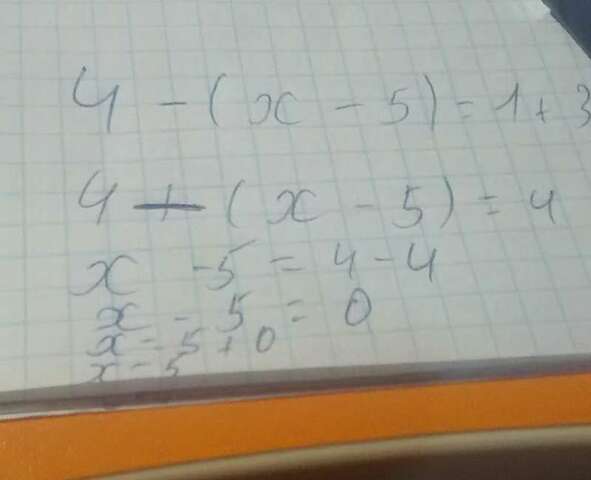 4 - (x - 5) = 1 + 3
4 - (x - 5) = 4
x - 5 = 4 - 4
x - 5 = 0
x = 5 + 0
x = 5